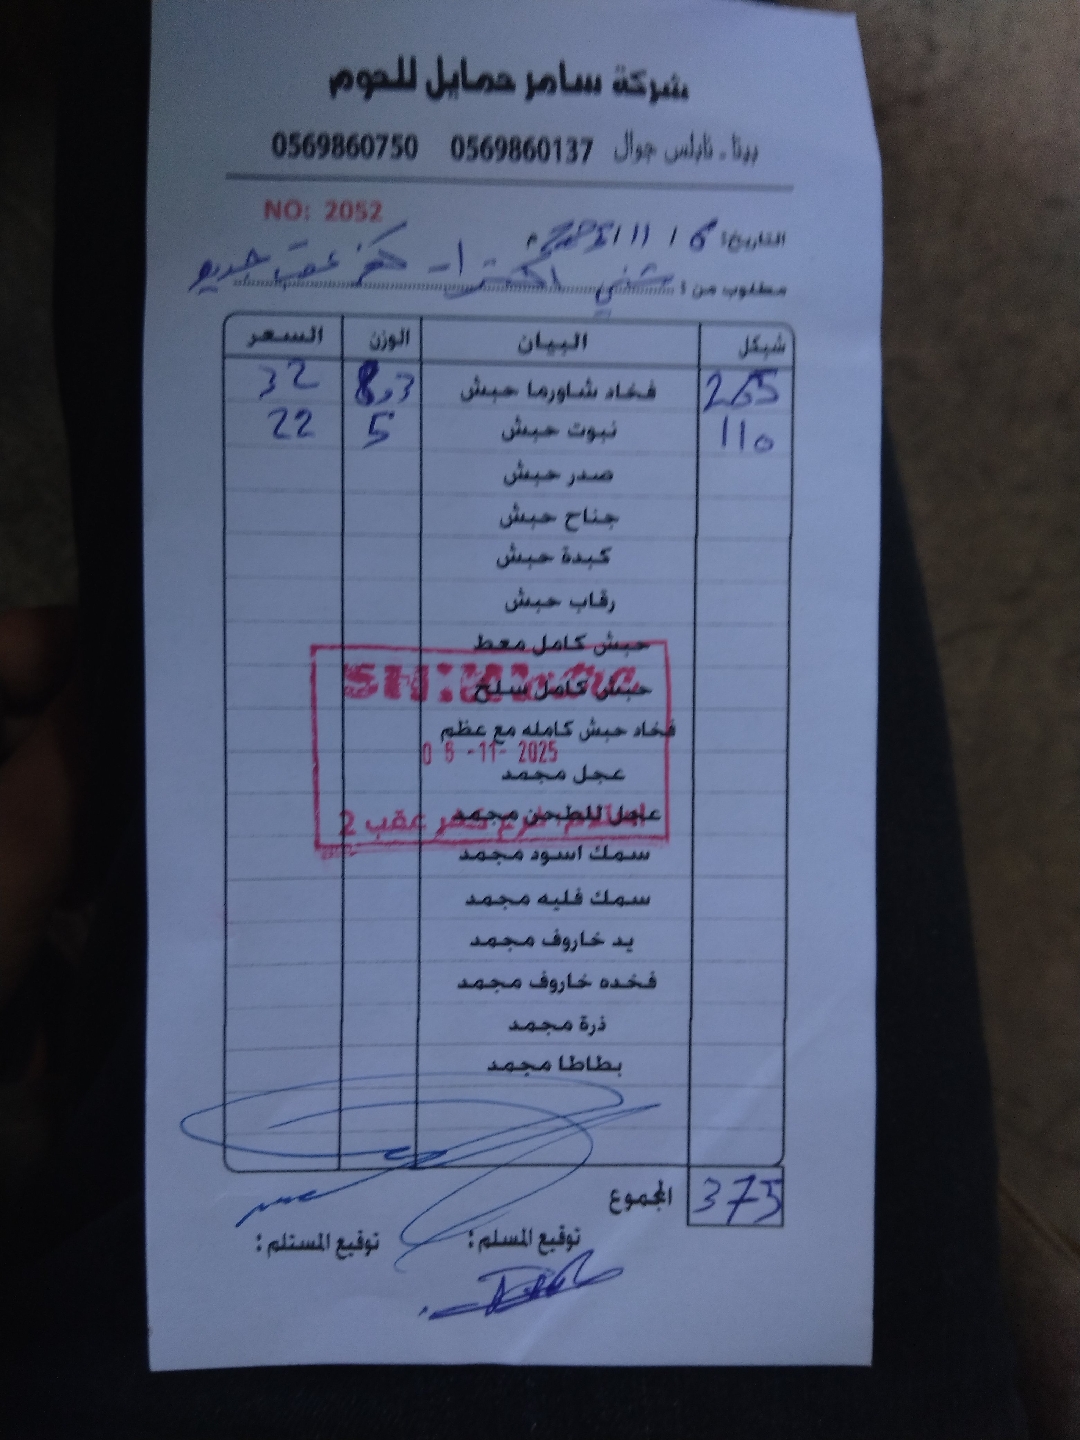 شركة سامر حمايل للحوم
بيتا - نابلس جوال 0569860137 0569860750
NO: 2052
التاريخ: 6 / 11 / 2025 م
مطلوب من : شني اكسترا - كفر عقب جديد
شيكل البيان الوزن السعر
265 فخاد شاورما حبش 8,3 32
110 نبوت حبش 5 22
صدر حبش
جناح حبش
كبدة حبش
رقاب حبش
حبش كامل معط
حبش كامل سلخ
فخاد حبش كامله مع عظم
06-11-2025
عجل مجمد
عجل للطحن مجمد
فرع كفر عقب 2
سمك اسود مجمد
سمك فليه مجمد
يد خاروف مجمد
فخده خاروف مجمد
ذرة مجمد
بطاطا مجمد
المجموع 375
توقيع المسلم : توقيع المستلم :